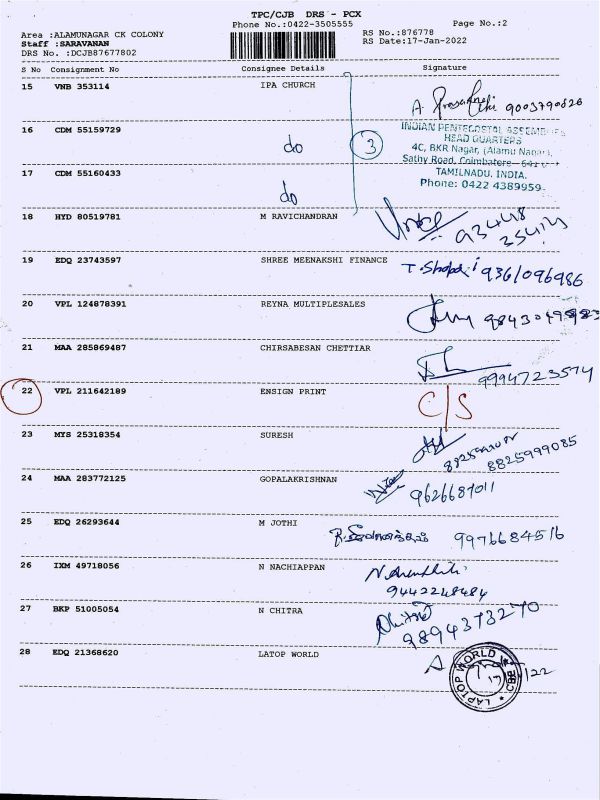 TPC/CJB DRS - PCX
Phone No.:0422-3505555
Page No.:2
Area :ALAMUNAGAR CK COLONY
RS No.:876778
Staff :SARAVANAN
RS Date:17-Jan-2022
DRS No. :DCJB87677802
S No Consignment No Consignee Details Signature
15 VNB 353114 IPA CHURCH
9003790826
16 CDM 55159729 do 3
INDIAN PENTECOSTAL ASSEMBLIES
HEAD QUARTERS
4C, BKR Nagar, (Alamu Nagar),
Sathy Road, Coimbatore
TAMILNADU, INDIA.
Phone: 0422 4389959
17 CDM 55160433 do
18 HYD 80519781 M RAVICHANDRAN
19 EDQ 23743597 SHREE MEENAKSHI FINANCE 9361096986
20 VPL 124878391 REYNA MULTIPLESALES
21 MAA 285869487 CHIRSABESAN CHETTIAR
9994723574
22 VPL 211642189 ENSIGN PRINT C/S
23 MYS 25318354 SURESH
8825999085
24 MAA 283772125 GOPALAKRISHNAN
9626687011
25 EDQ 26293644 M JOTHI 9976684516
26 IXM 49718056 N NACHIAPPAN
9442248484
27 BKP 51005054 N CHITRA
9894373270
28 EDQ 21368620 LATOP WORLD
LAPTOP WORLD CBE